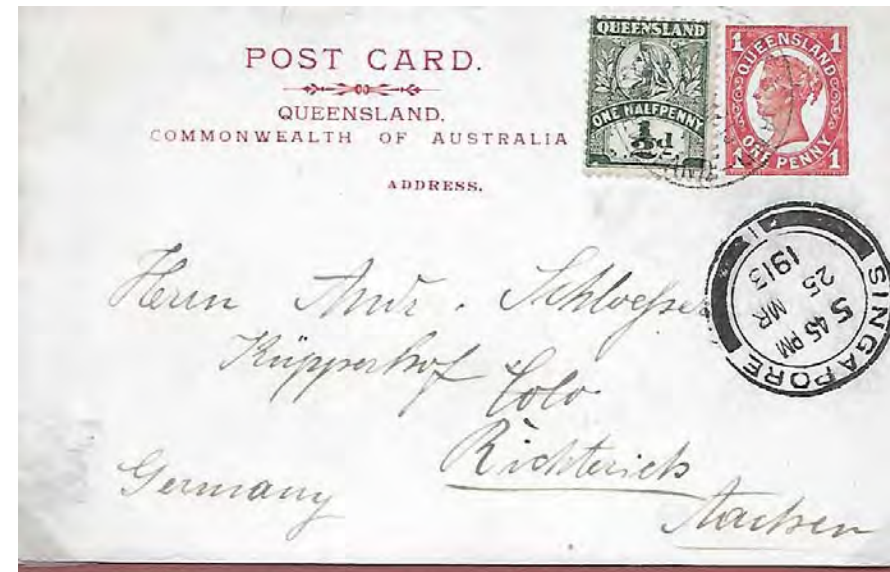 POST CARD.
QUEENSLAND.
COMMONWEALTH OF AUSTRALIA
ADDRESS.
QUEENSLAND
ONE HALFPENNY
½d
1 QUEENSLAND 1
1 ONE PENNY 1
SINGAPORE
1
5 45 PM
MR
25
1913
Herrn Andr. Schloesser
Küpperhof
Colo
Richterich
Germany
Aachen